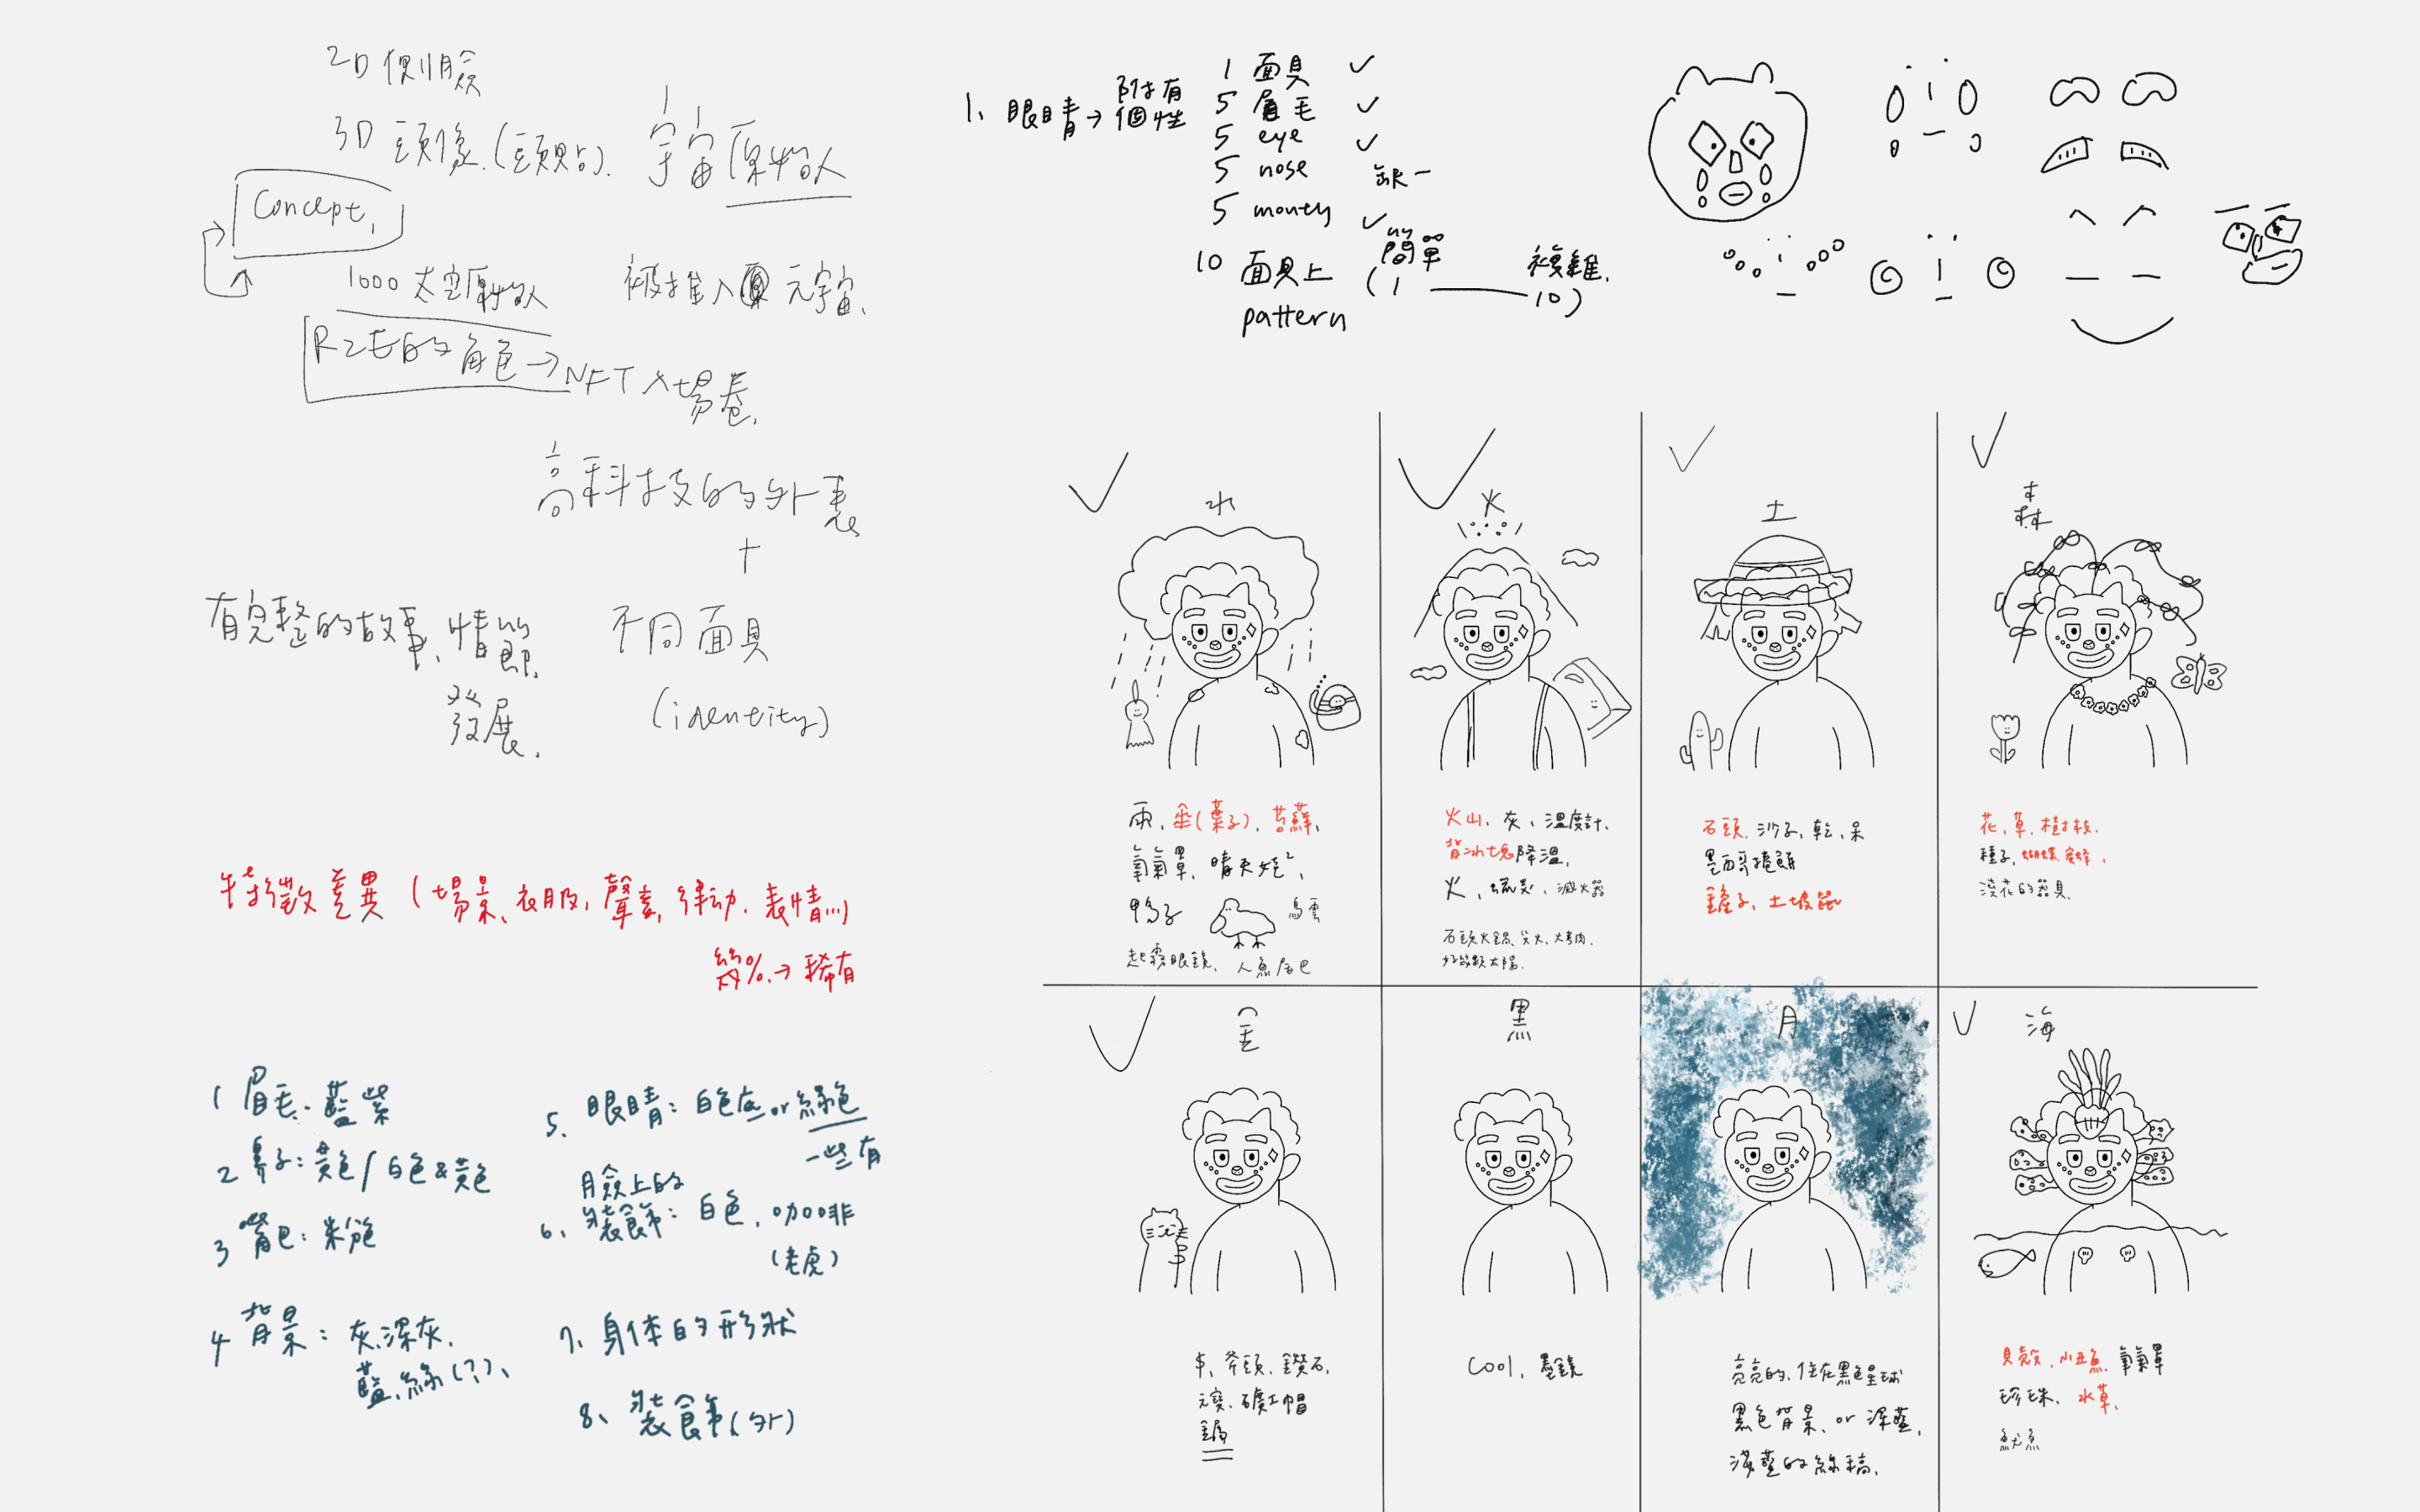 2D 側臉
3D 頭像.(頭貼). 宇宙原始人
Concept,
1000 太空原始人
被推入 元宇宙.
R2E的角色→NFT入場卷.
高科技的外表
+
有完整的故事、情節.
發展.
不同面具
(identity)
特徵差異 (場景、衣服, 聲音, 律动. 表情...)
幾%.→ 稀有
1 眉毛: 藍 紫
2 鼻子: 黃色 / 白色 & 黃色
3 嘴巴: 粉色
4 背景: 灰.深灰.
藍.綠(?)、
5、眼睛: 白色底 or 綠色
一些有
6、臉上的裝飾: 白色, 咖啡
(老虎)
7、身体的形狀
8、裝飾(外)
1、眼睛→附有個性
1 面具 ✓
5 眉毛 ✓
5 eye ✓
5 nose 缺一
5 mouth ✓
10 面具上 pattern
簡單 複雜.
(1 — 10)
水
雨、傘(葉子)、苔蘚、
氧氣罩、晴天娃²,
鴨子
烏雲
起霧眼鏡、人魚尾巴
火
火山、灰、溫度計、
背冰塊降溫,
火、滅火器
石頭火鍋、火、烤肉.
好幾顆太陽.
土
石頭、沙子、乾、呆
墨西哥捲餅
鏟子、土坡鼠
森
花、草、樹枝.
種子、蝴蝶 蜜蜂,
澆花的器具.
金
斧頭、鑽石、
元寶、礦工帽
黑
cool、墨鏡
月
亮亮的、住在黑色星球
黑色背景、or 深藍,
淺藍的線稿、
海
貝殼、小丑魚、氧氣罩
珍珠、水草、
魷魚